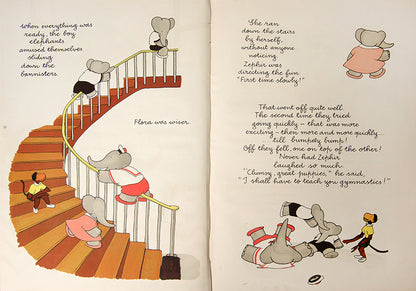 When everything was
ready, the boy
elephants
amused themselves
sliding
down the
bannisters.
Flora was wiser.
She ran
down the stairs
by herself,
without anyone
noticing.
Zephir was
directing the fun.
"First time slowly!"
That went off quite well.
The second time they tried
going quickly – that was more
exciting – then more and more quickly...
till bumpety bump!
Off they fell, one on top of the other!
Never had Zephir
laughed so much.
"Clumsy, great puppies," he said,
"I shall have to teach you gymnastics!"